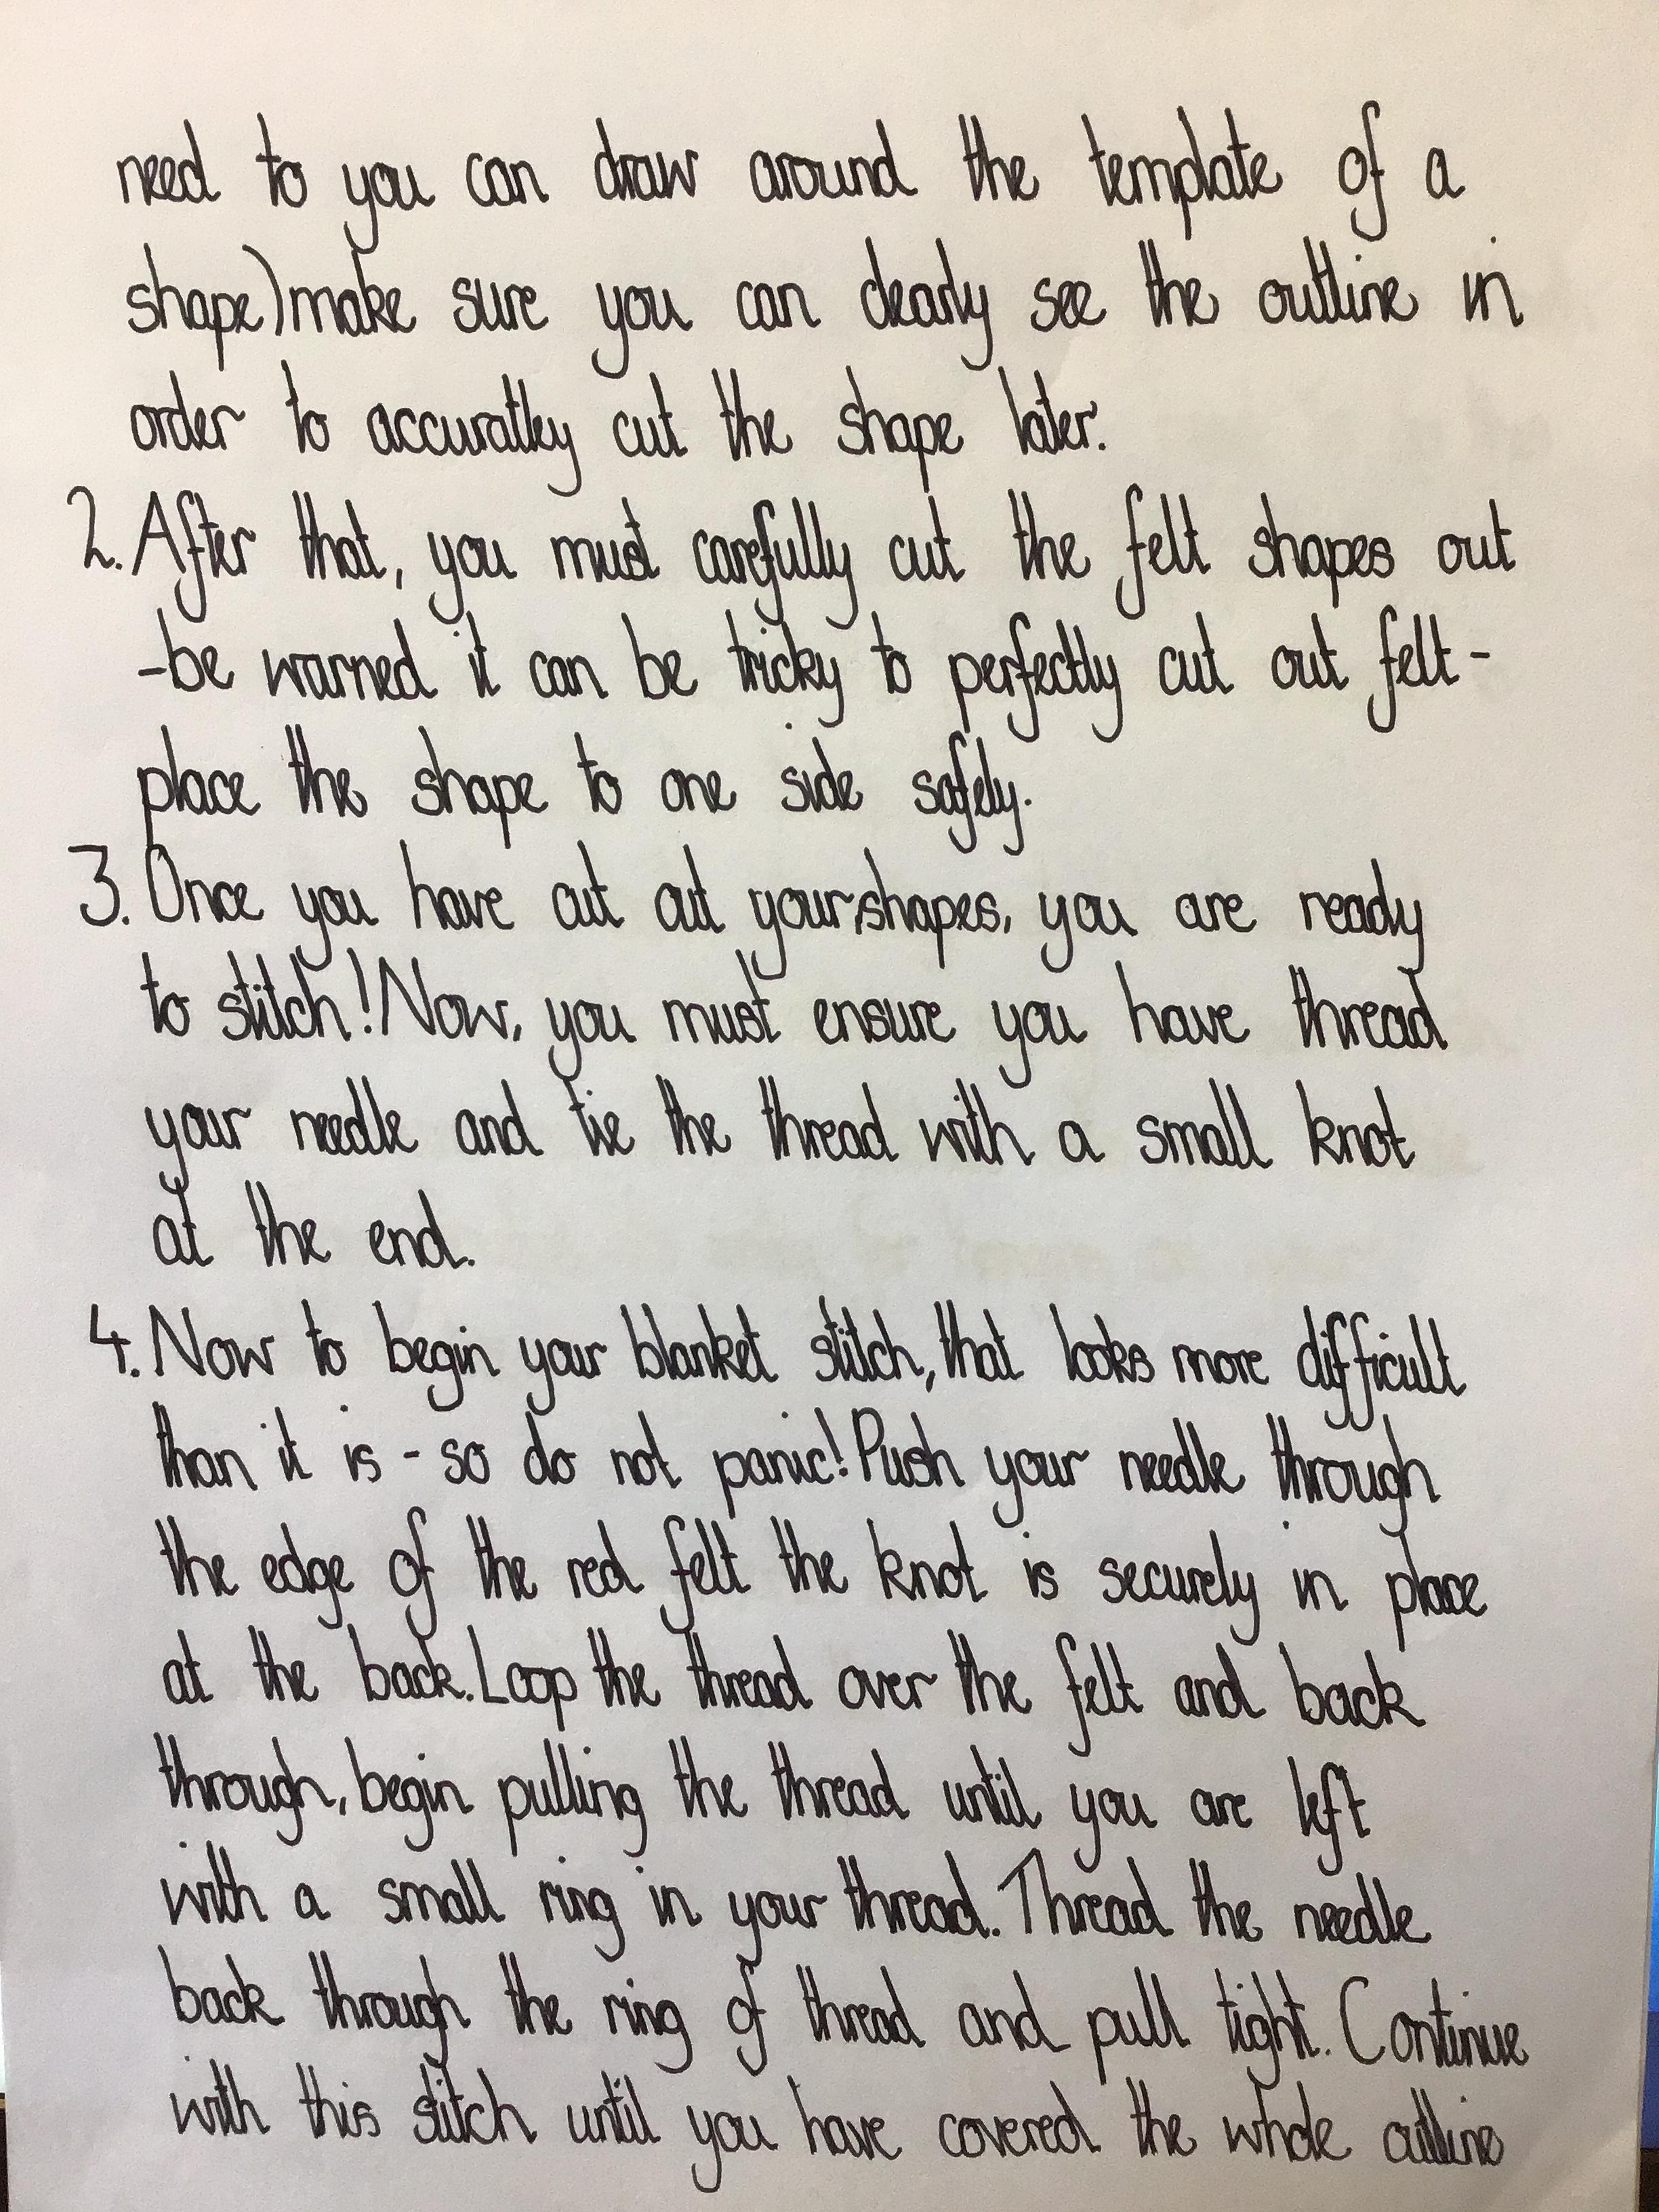 need to you can draw around the template of a
shape) make sure you can clearly see the outline in
order to accuratley cut the shape later.
2. After that, you must carefully cut the felt shapes out
-be warned it can be tricky to perfectly cut out felt-
place the shape to one side safely.
3. Once you have cut out your shapes, you are ready
to stitch! Now, you must ensure you have thread
your needle and tie the thread with a small knot
at the end.
4. Now to begin your blanket stitch, that looks more difficult
than it is - so do not panic! Push your needle through
the edge of the red felt the knot is securely in place
at the back. Loop the thread over the felt and back
through, begin pulling the thread until you are left
with a small ring in your thread. Thread the needle
back through the ring of thread and pull tight. Continue
with this stitch until you have covered the whole outline